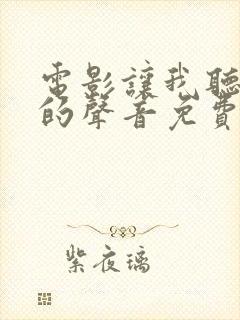 電影讓我聽
的聲音免費
紫夜璃